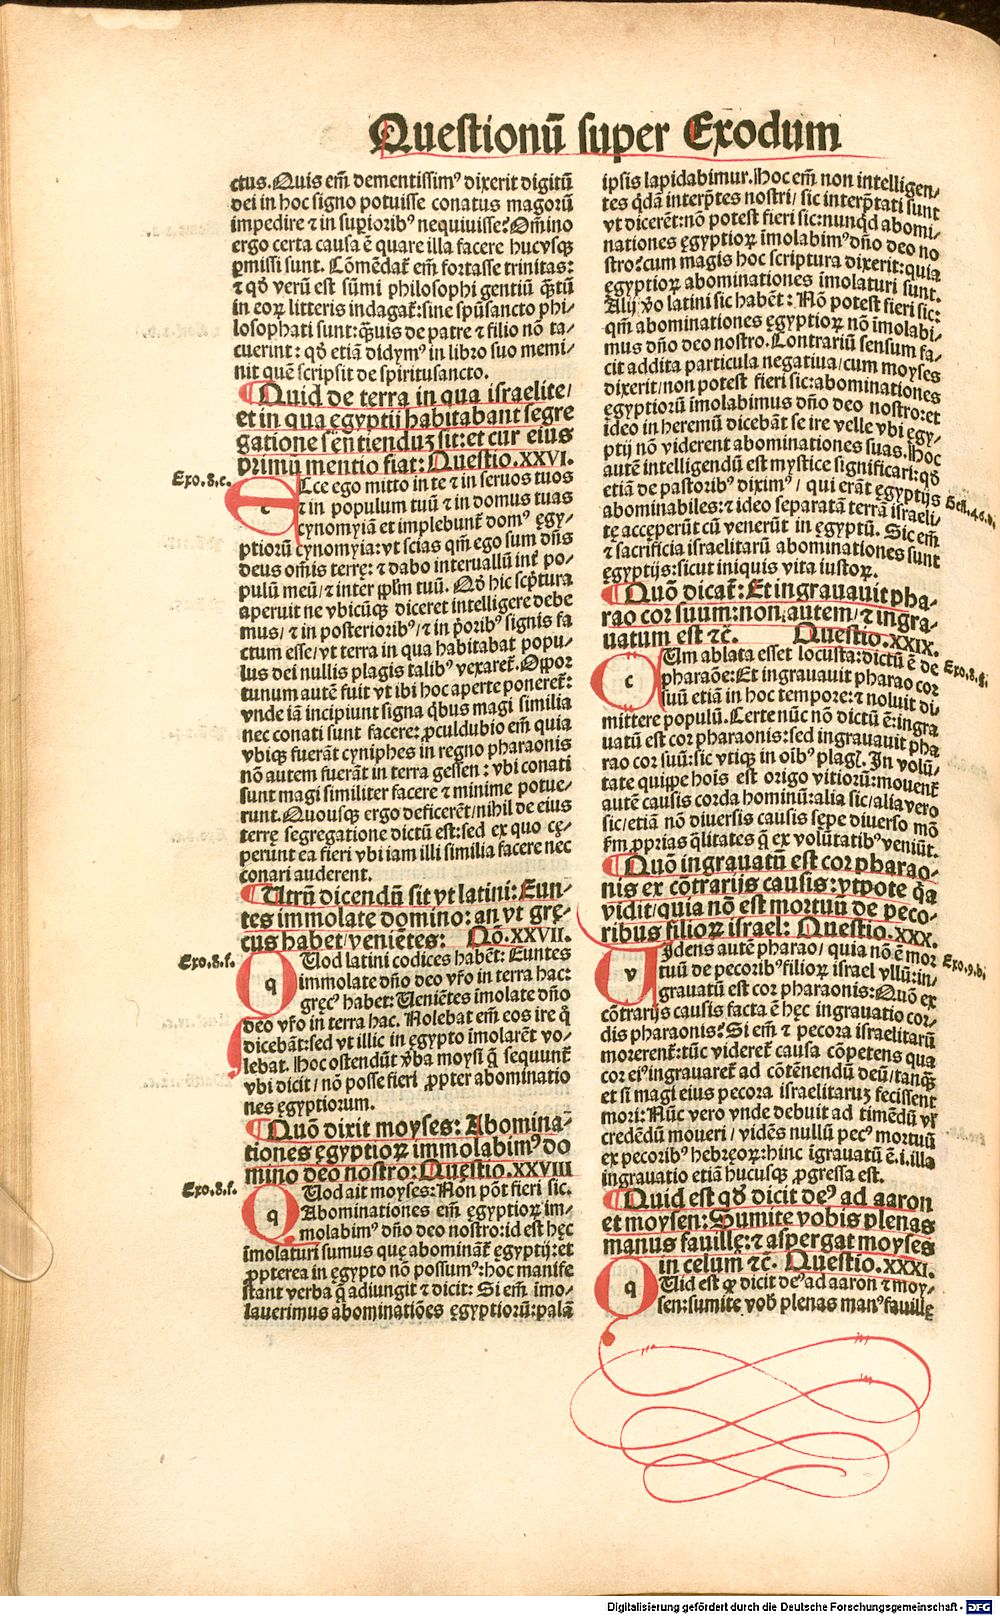 Questionū super Exodum
ctus. Quis em̄ dementissimꝰ dixerit digitū
dei in hoc signo potuisse conatus magorū
impedire ⁊ in supiorib⁹ nequiuisse? Om̄ino
ergo certa causa ē quare illa facere hucvsqꝫ
ꝑmissi sunt. Cōmēdat̄ em̄ fortasse trinitas:
⁊ qđ verū est sūmi philosophi gentiū quātū
in eoꝝ litteris indagat̄: sine spūsancto phi/
losophati sunt: quāuis de patre ⁊ filio nō ta/
cuerint: qđ etiā didym⁹ in libro suo memi/
nit quē scripsit de spiritusancto.
¶ Quid de terra in qua israelite/
et in qua egyptii habitabant segre
gatione sentienduꝫ sit: et cur eius
primū mentio fiat: Questio. XXVI.
Exo. 8. c.
e Cce ego mitto in te ⁊ in seruos tuos
⁊ in populum tuū ⁊ in domus tuas
cynomyiā et implebunt̄ dom⁹ ęgy/
ptiorū cynomyia: vt scias qm̄ ego sum dn̄s
deus om̄is terrę: ⁊ dabo interuallū int̄ po/
pulū meū/ ⁊ inter pl̄m tuū. Qđ hic sc̄ptura
aperuit ne vbicūqꝫ diceret intelligere debe
mus/ ⁊ in posteriorib⁹/ ⁊ in p̄orib⁹ signis fa
ctum esse/ vt terra in qua habitabat popu/
lus dei nullis plagis talib⁹ vexaret̄. Oppor
tunum autē fuit vt ibi hoc aperte poneret̄:
vnde iā incipiunt signa qbus magi similia
nec conati sunt facere: ꝓculdubio em̄ quia
vbiqꝫ fuerāt cyniphes in regno pharaonis
nō autem fuerāt in terra gessen: vbi conati
sunt magi similiter facere ⁊ minime potue/
runt. Quousqꝫ ergo deficerēt/ nihil de eius
terrę segregatione dictū est: sed ex quo cę/
perunt ea fieri vbi iam illi similia facere nec
conari auderent.
¶ Utrū dicendū sit vt latini: Eun/
tes immolate domino: an vt grę/
cus habet/ veniētes: Qō. XXVII.
Exo. 8. f.
q Uod latini codices habēt: Euntes
immolate dn̄o deo vr̄o in terra hac:
gręc⁹ habet: Ueniētes imolate dn̄o
deo vr̄o in terra hac. Nolebat em̄ eos ire q̄
dicebāt: sed vt illic in egypto imolarēt vo/
lebat. Hoc ostendūt v̄ba moysi q̄ sequunt̄
vbi dicit/ nō posse fieri ꝓpter abominatio
nes ęgyptiorum.
¶ Quō dixit moyses: Abomina/
tiones ęgyptioꝝ immolabim⁹ do
mino deo nostro: Questio. XXVIII
Exo. 8. f.
q Uod ait moyses: Non pōt fieri sic.
Abominationes em̄ ęgyptioꝝ im/
molabim⁹ dn̄o deo nostro: id est hęc
imolaturi sumus quę abomināt ęgyptij: et
ꝓpterea in ęgypto nō possum⁹: hoc manife
stant verba q̄ adiungit ⁊ dicit: Si em̄ imo/
lauerimus abominatiōes ęgyptiorū: palā
ipsis lapidabimur. Hoc em̄ non intelligen/
tes qdā interp̄tes nostri/ sic interp̄tati sunt
vt dicerēt: nō potest fieri sic: nunqd abomi/
nationes ęgyptioꝝ imolabim⁹ dn̄o deo no
stro: cum magis hoc scriptura dixerit: quia
egyptioꝝ abominationes imolaturi sunt.
Alij v̄o latini sic habēt: Nō potest fieri sic:
qm̄ abominationes ęgyptioꝝ nō imolabi/
mus dn̄o deo nostro. Contrariū sensum fa/
cit addita particula negatiua/ cum moyses
dixerit/ non potest fieri sic: abominationes
ęgyptiorū imolabimus dn̄o deo nostro: et
ideo in heremū dicebāt se ire velle vbi egy/
ptij nō viderent abominationes suas. Hoc
autē intelligendū est mystice significari: qđ
etiā de pastorib⁹ dixim⁹/ qui erāt ęgyptijs
Gen̄. 46. d.
abominabiles: ⁊ ideo separatā terrā israeli/
tę acceperūt cū venerūt in ęgyptū. Sic em̄
⁊ sacrificia israelitarū abominationes sunt
ęgyptijs: sicut iniquis vita iustoꝝ.
¶ Quō dicat̄: Et ingrauauit pha/
rao cor suum: non autem/ ⁊ ingra/
uatum est ⁊c̄. Questio. XXIX.
c Um ablata esset locusta: dictū ē de
Exo. 8. g.
pharaōe: Et ingrauauit pharao cor
suū etiā in hoc tempore: ⁊ noluit di/
mittere populū. Certe nūc nō dictū ē: ingra
uatū est cor pharaonis: sed ingrauauit pha
rao cor suū: sic vtiqꝫ in oīb⁹ plagꝭ. In volū/
tate quippe hoīs est origo vitiorū: mouent̄
autē causis corda hominū: alia sic/ alia vero
sic/ etiā nō diuersis causis sępe diuerso mō
km̄ ꝓprias qlitates q̄ ex volūtatib⁹ veniūt.
¶ Quō ingrauatū est cor pharao/
nis ex cōtrarijs causis: vtpote qa
vidit/ quia nō est mortuū de peco/
ribus filioꝝ israel: Questio. XXX.
v Idens autē pharao/ quia nō ē mor
Exo. 9. b.
tuū de pecorib⁹ filioꝝ israel vllū: in/
grauatū est cor pharaonis: Quō ex
cōtrarijs causis facta ē hęc ingrauatio cor/
dis pharaonis? Si em̄ ⁊ pecora israelitarū
morerent̄: tūc videret̄ causa cōpetens qua
cor ei⁹ ingrauaret̄ ad cōtēnendū deū/ tanqꝫ
et si magi eius pecora israelitaruꝫ fecissent
mori: Nūc vero vnde debuit ad timēdū vl̄
credēdū moueri/ vidēs nullū pec⁹ mortuū
ex pecorib⁹ hebreoꝝ: hinc igrauatū ē. i. illa
ingrauatio etiā hucusqꝫ ꝓgressa est.
¶ Quid est qđ dicit de⁹ ad aaron
et moysen: Sumite vobis plenas
manus fauillę: ⁊ aspergat moyses
in celum ⁊c̄. Questio. XXXI.
q Uid est qđ dicit de⁹ ad aaron ⁊ moy/
sen: sumite vob̄ plenas man⁹ fauillę
Digitalisierung gefördert durch die Deutsche Forschungsgemeinschaft - DFG